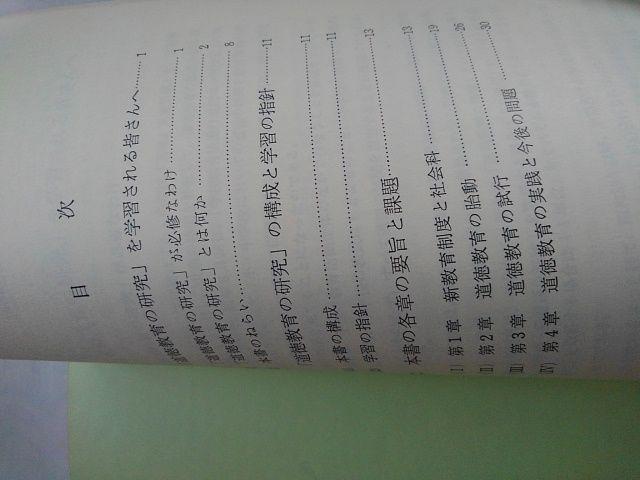 目次
道徳教育の研究」を学習される皆さんへ……1
道徳教育の研究」が必修なわけ……1
「道徳教育の研究」とは何か……2
本書のねらい……8
「道徳教育の研究」の構成と学習の指針……11
本書の構成……11
学習の指針……11
本書の各章の要旨と課題……13
〔I〕 第1章 新教育制度と社会科……13
〔II〕 第2章 道徳教育の胎動……19
〔III〕 第3章 道徳教育の試行……26
〔IV〕 第4章 道徳教育の実践と今後の問題……30